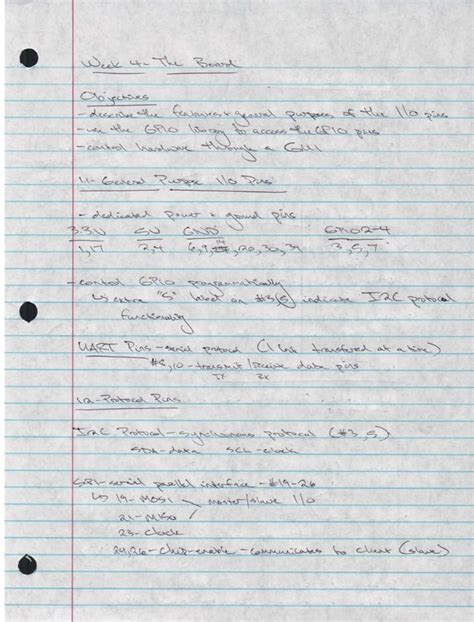 Week 4 - The Board
Objectives
- describe the features + general purposes of the I/O pins
- use the GPIO library to access the GPIO pins
- control hardware through a GUI
1.1 - General Purpose I/O Pins
- dedicated power + ground pins
3.3V 5V GND GPIO2-4
1,17 2,4 6,9,14,20,30,39 3,5,7
- control GPIO programmatically
↳ extra "S" label on #3,5 indicate I2C protocol
functionality
UART Pins - serial protocol (1 bit transferred at a time)
#8,10 - transmit/receive data pins
TX RX
1.2 - Protocol Pins
I2C Protocol - synchronous protocol (#3,5)
SDA - data SCL - clock
SPI - serial parallel interface - #19-26
↳ 19 - MOSI master/slave I/O
21 - MISO
23 - Clock
24,26 - chip-enable - communicates to client (slave)